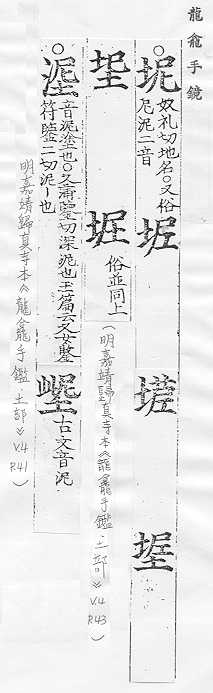 龍龕手鏡
○坭
奴礼切地名○又俗
尼泥二音
俗並同上
(明嘉靖歸真寺本《龍龕手鑑·土部》V.4 P.43)
○埿
音泥塗也○又蒲鑒切深泥也玉篇云又女
符鑒二切泥~也
古文音泥
(明嘉靖歸真寺本《龍龕手鑑·土部》V.4 P.41)